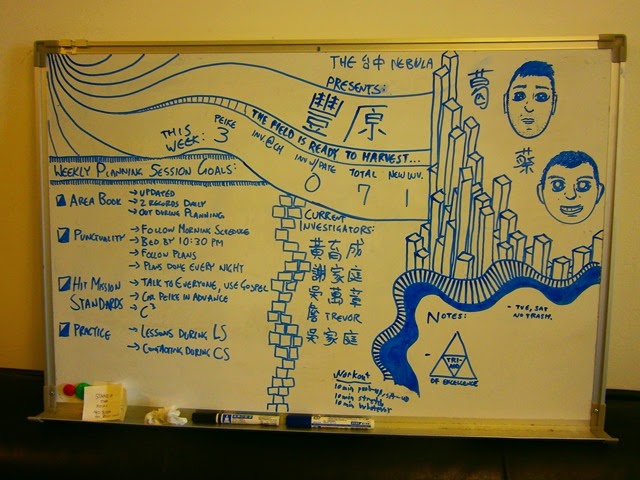 THE 台中 NEBULA
PRESENTS:
豐原
THE FIELD IS READY TO HARVEST...
THIS WEEK:
PEIKE
3
INV.@CH
INV W/DATE
0
TOTAL
7
NEW INV.
1
葛
葉
WEEKLY PLANNING SESSION GOALS:
AREA BOOK
→ UPDATED
→ 2 RECORDS DAILY
→ OUT DURING PLANNING
PUNCTUALITY
→ FOLLOW MORNING SCHEDULE
→ BED BY 10:30 PM
→ FOLLOW PLANS
→ PLANS DONE EVERY NIGHT
HIT MISSION STANDARDS
→ TALK TO EVERYONE, USE GOSPEL
→ CAR PEIKE IN ADVANCE
→ C³
PRACTICE
→ LESSONS DURING LS
→ CONTACTING DURING CS
CURRENT
INVESTIGATORS:
黃育成
謝家庭
吳
詹 TREVOR
吳家庭
NOTES:
- TUE, SAT
NO TRASH.
- TRI-
OF EXCELLENCE
WORKOUT
10 min push-up/sit-up
10 min stretch
10 min whatever